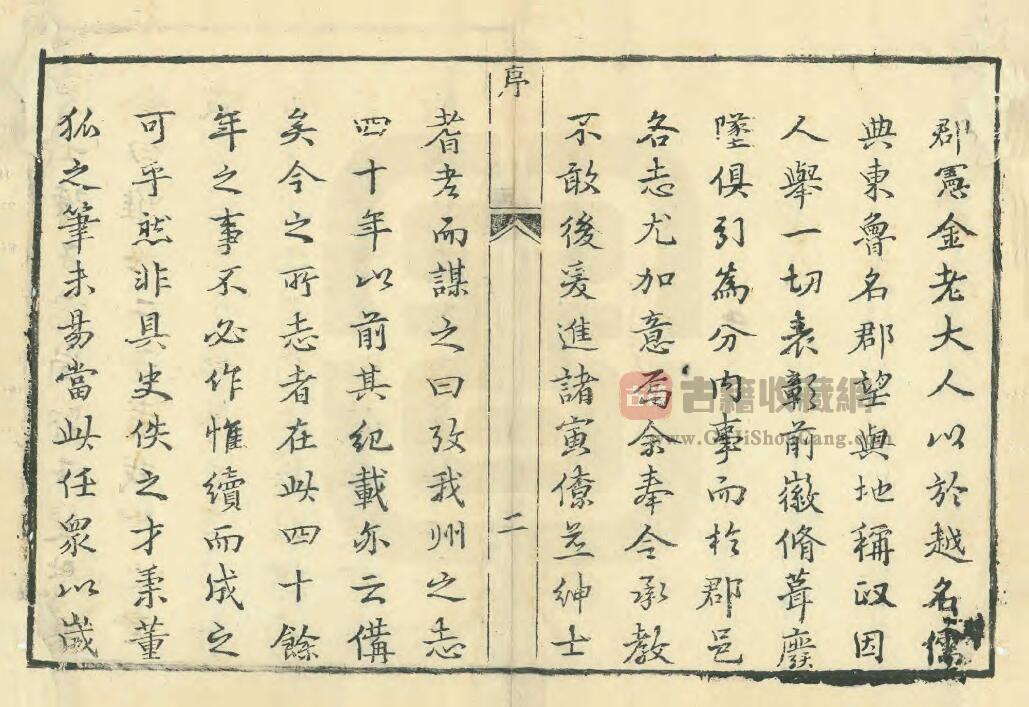 郡憲金老大人以於越名儒
典東魯名郡望與地稱政因
人舉一切表彰前徽脩葺廢
墜俱引為分內事而於郡邑
各志尤加意焉余奉令承教
不敢後爰進諸寅僚並紳士
序
二
耆老而謀之曰攷我州之志
四十年以前其紀載亦云備
矣今之所志者在此四十餘
年之事不必作惟續而成之
可乎然非具史佚之才秉董
狐之筆未易當此任眾以歲
古籍收藏網
www.GuJiShouCang.com